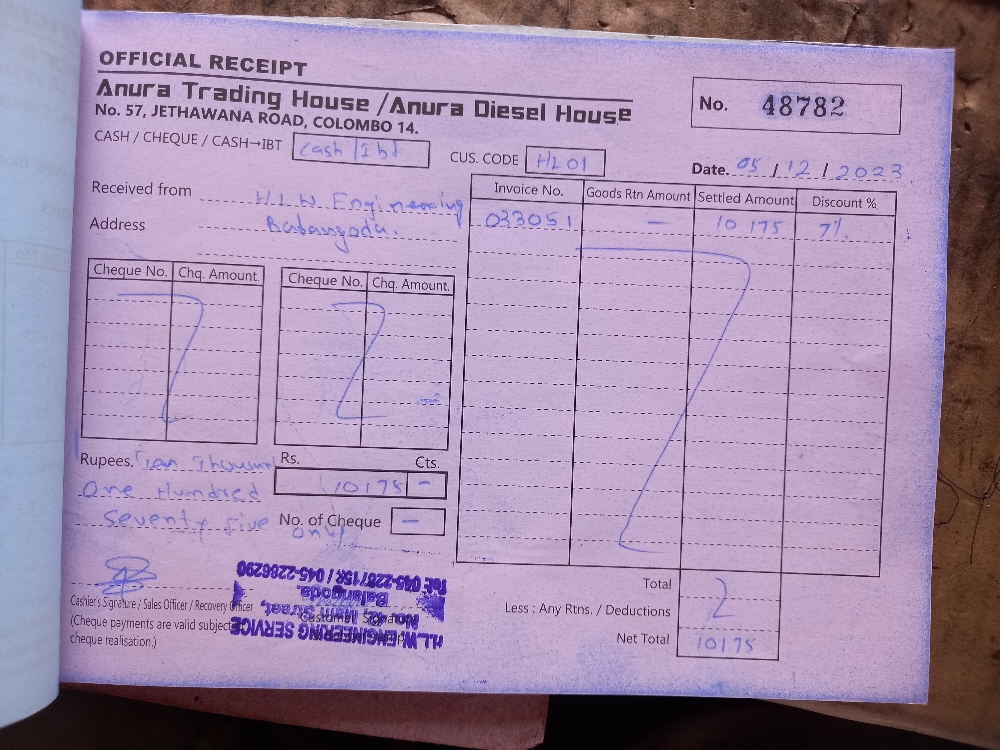 OFFICIAL RECEIPT
Anura Trading House / Anura Diesel House
No. 57, JETHAWANA ROAD, COLOMBO 14.
No. 48782
CASH / CHEQUE / CASH→IBT Cash / Ibt
CUS. CODE HL01
Date. 05 / 12 / 2023
Received from H.L.W Engineering
Address Balangoda.
Invoice No. Goods Rtn Amount Settled Amount Discount %
033051 — 10 175 7%
Cheque No. Chq. Amount.
Cheque No. Chq. Amount.
Rupees. Ten Thousand
One Hundred
Seventy five only
Rs. Cts.
10175 –
No. of Cheque —
Total
Less : Any Rtns. / Deductions
Net Total 10175
Cashier's Signature / Sales Officer / Recovery Officer
(Cheque payments are valid subject
cheque realisation.)
Customer Signature
H.L.W. ENGINEERING SERVICE
No. 42, Main Street,
Balangoda.
Tel: 045-2287158 / 045-2286290